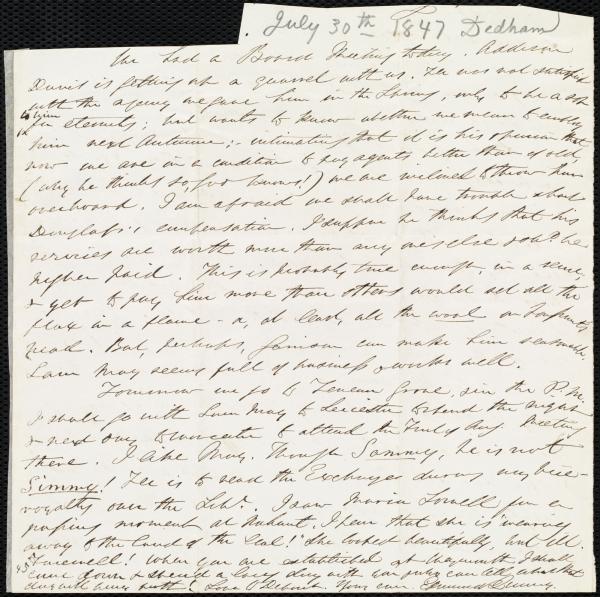 July 30th 1847 Dedham
We had a Board Meeting today. Addison
Davis is getting up a quarrel with us. He was not satisfied
with the agency we gave him in the Spring, only to be a
for eternity; but wants to know whether we mean to employ
him next Autumn; - intimating that it is his opinion that
now we are in a condition to pay agents better than of old
(why he thinks so, God knows!) we are inclined to throw him
overboard. I am afraid we shall have trouble about
Douglass's compensation. I suppose he thinks that his
services are worth more than any one's else & shd. be
higher paid. This is probably true enough, in a sense,
& yet to pay him more than others would set all the
flax in a flame - or, at least, all the wool on
head. But, perhaps, Garrison can make him reasonable.
Sam May seems full of business & works well.
Tomorrow we go to Temean Grove, in the P.M.
I shall go with Sam May to Leicester to spend the night
& next day to Worcester to attend the Meeting
there. I like May. Though Sammy, he is not
Simmy! He is to read the Exchanges during my vice-
royalty over the Libr. I saw Maria Lowell for a
passing moment at Nahant. I fear that she is "wearing
away to the Land of the Leal!" She looked beautifully, but ill.
Farewell! When you are established at Weymouth I shall
come down & spend a long day with you
Love to Deborah. Yours ever Edmund Quincy.